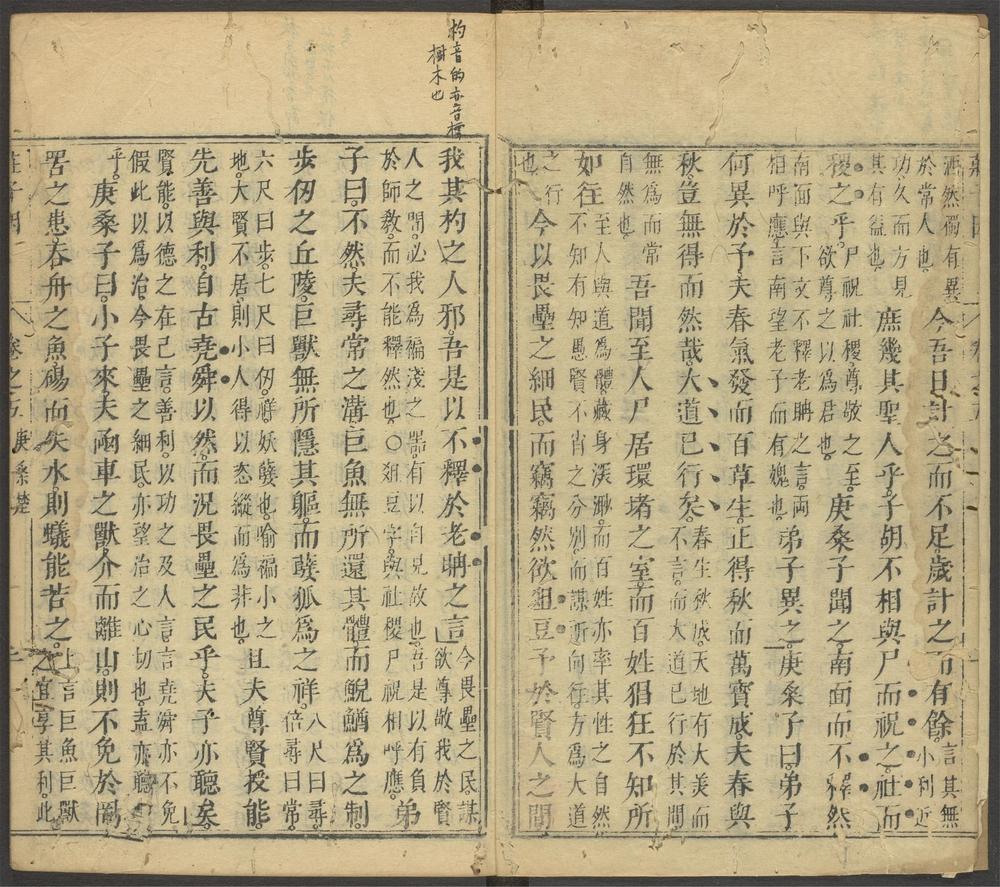 洒然獨有異
於常人也。
今吾日計之而不足。歲計之而有餘。
言其無
小利近
功久而方見
其有益也。
庶幾其聖人乎。子胡不相與尸而祝之。社而
稷之乎。
尸祝社稷尊敬之至。
欲尊之以爲君也。
庚桑子聞之。南面而不釋然
南面與下文不釋老聃之言兩
相呼應言南望老子而有媿也。
弟子異之。庚桑子曰。弟子
何異於予。夫春氣發而百草生。正得秋而萬寶成。夫春與
秋。豈無得而然哉。大道已行矣。
春生秋成。天地有大美而
不言。而大道已行於其間。
無爲而常
自然也。
吾聞至人尸居環堵之室。而百姓猖狂不知所
如往
至人與道爲體藏身深渺。而百姓亦率其性之自然
不知有知愚賢不肖之分別。而謀所向行。方爲大道
之行
也。
今以畏壘之細民。而竊竊然欲俎豆予於賢人之間
杓音的亦音標
樹木也
我其杓之人邪。吾是以不釋於老聃之言
今畏壘之民謀
欲尊敬我於賢
人之間。必我爲褊淺之器。有以自見故也。吾是以有負
於師教而不能釋然也。〇俎豆字與社稷尸祝相呼應。
弟
子曰。不然夫尋常之溝。巨魚無所還其體。而鯢鰌爲之制。
步仞之丘陵。巨獸無所隱其軀。而㜸狐爲之祥。
八尺曰尋。
倍尋曰常。
六尺曰步。七尺曰仞。祥。妖孽也。喻褊小之
地。大賢不居。則小人得以恣縱而爲非也。
且夫尊賢授能。
先善與利。自古堯舜以然。而況畏壘之民乎。夫子亦聽矣。
賢能。以德之在己言。善利。以功之及人言。言堯舜亦不免
假此以爲治。今畏壘之細民。亦望治之心切也。盍亦聽
乎。
庚桑子曰。小子來。夫函車之獸。介而離山。則不免於罔
罟之患。吞舟之魚。碭而失水。則蟻能苦之。
上言巨魚巨獸
之宜享其利。此
莊子因
卷之五
庚桑楚